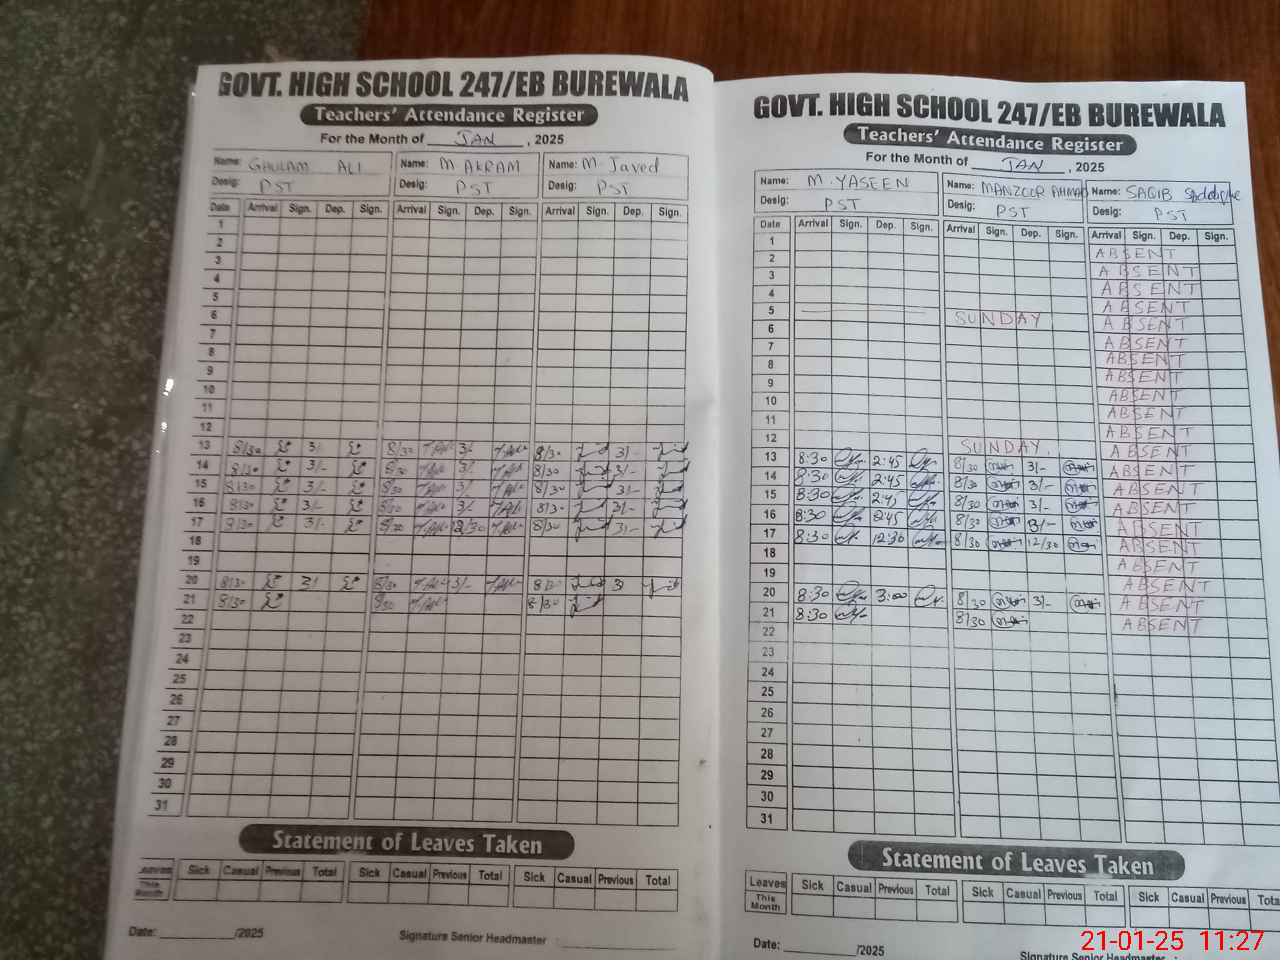 GOVT. HIGH SCHOOL 247/EB BUREWALA
Teachers' Attendance Register
For the Month of JAN , 2025
Name: GHULAM ALI Name: M. AKRAM Name: M. Javed
Desig: PST Desig: PST Desig: PST
Date Arrival Sign. Dep. Sign. Arrival Sign. Dep. Sign. Arrival Sign. Dep. Sign.
1
2
3
4
5
6
7
8
9
10
11
12
13 8/30 3/- 8/30 3/- 8/30 3/-
14 8/30 3/- 8/30 3/- 8/30 3/-
15 8/30 3/- 8/30 3/- 8/30 3/-
16 8/30 3/- 8/30 3/- 8/30 3/-
17 8/30 3/- 8/30 12/30 8/30 3/-
18
19
20 8/30 3/ 8/30 3/- 8/30 3
21 8/30 8/30 8/30
22
23
24
25
26
27
28
29
30
31
Statement of Leaves Taken
Leaves Sick Casual Previous Total Sick Casual Previous Total Sick Casual Previous Total
This Month
Date: /2025 Signature Senior Headmaster :
GOVT. HIGH SCHOOL 247/EB BUREWALA
Teachers' Attendance Register
For the Month of JAN , 2025
Name: M. YASEEN Name: MANZOOR AHMAD Name: SAQIB
Desig: PST Desig: PST Desig: PST
Date Arrival Sign. Dep. Sign. Arrival Sign. Dep. Sign. Arrival Sign. Dep. Sign.
1 ABSENT
2 ABSENT
3 ABSENT
4 ABSENT
5 SUNDAY ABSENT
6 ABSENT
7 ABSENT
8 ABSENT
9 ABSENT
10 ABSENT
11 ABSENT
12 SUNDAY. ABSENT
13 8:30 2:45 8/30 3/- ABSENT
14 8:30 2:45 8/30 3/- ABSENT
15 8:30 2:45 8/30 3/- ABSENT
16 8:30 2:45 8/30 3/- ABSENT
17 8:30 12:30 8/30 12/30 ABSENT
18 ABSENT
19 ABSENT
20 8:30 3:00 8/30 3/- ABSENT
21 8:30 8/30 ABSENT
22
23
24
25
26
27
28
29
30
31
Statement of Leaves Taken
Leaves Sick Casual Previous Total Sick Casual Previous Total Sick Casual Previous Total
This Month
Date: /2025 Signature Senior Headmaster :
21-01-25 11:27